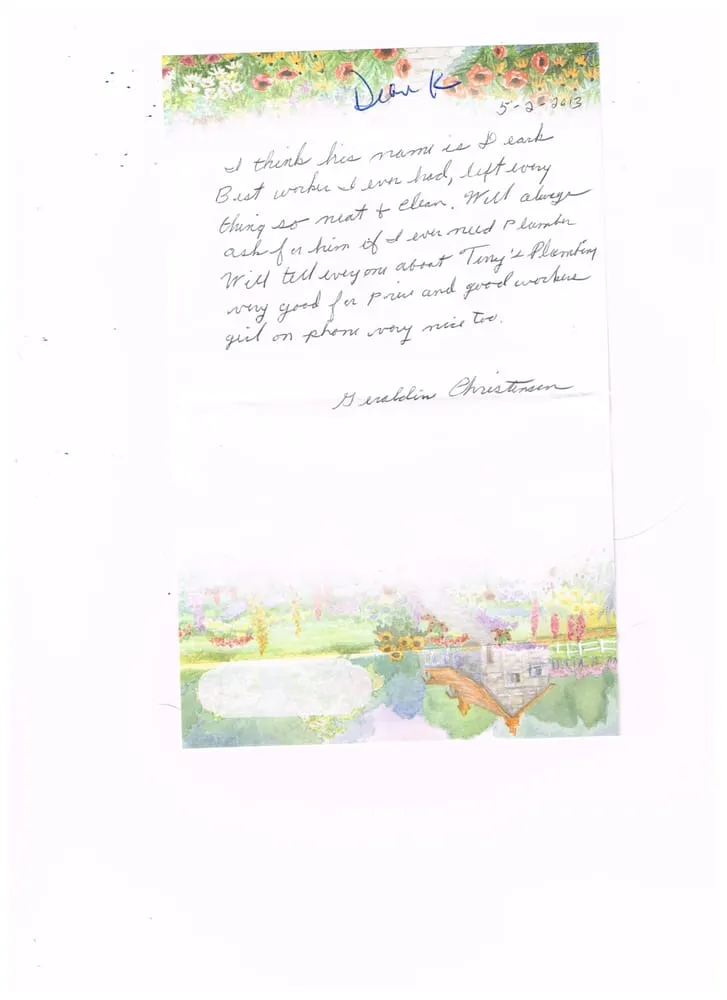 Dean K
5-2-2013
I think his name is Deark
Best worker I ever had, left every
thing so neat & clean. Will always
ask for him if I ever need plumber
Will tell everyone about Terry's Plumbing
very good for price and good workers
girl on phone very nice too.
Geraldin Christensen